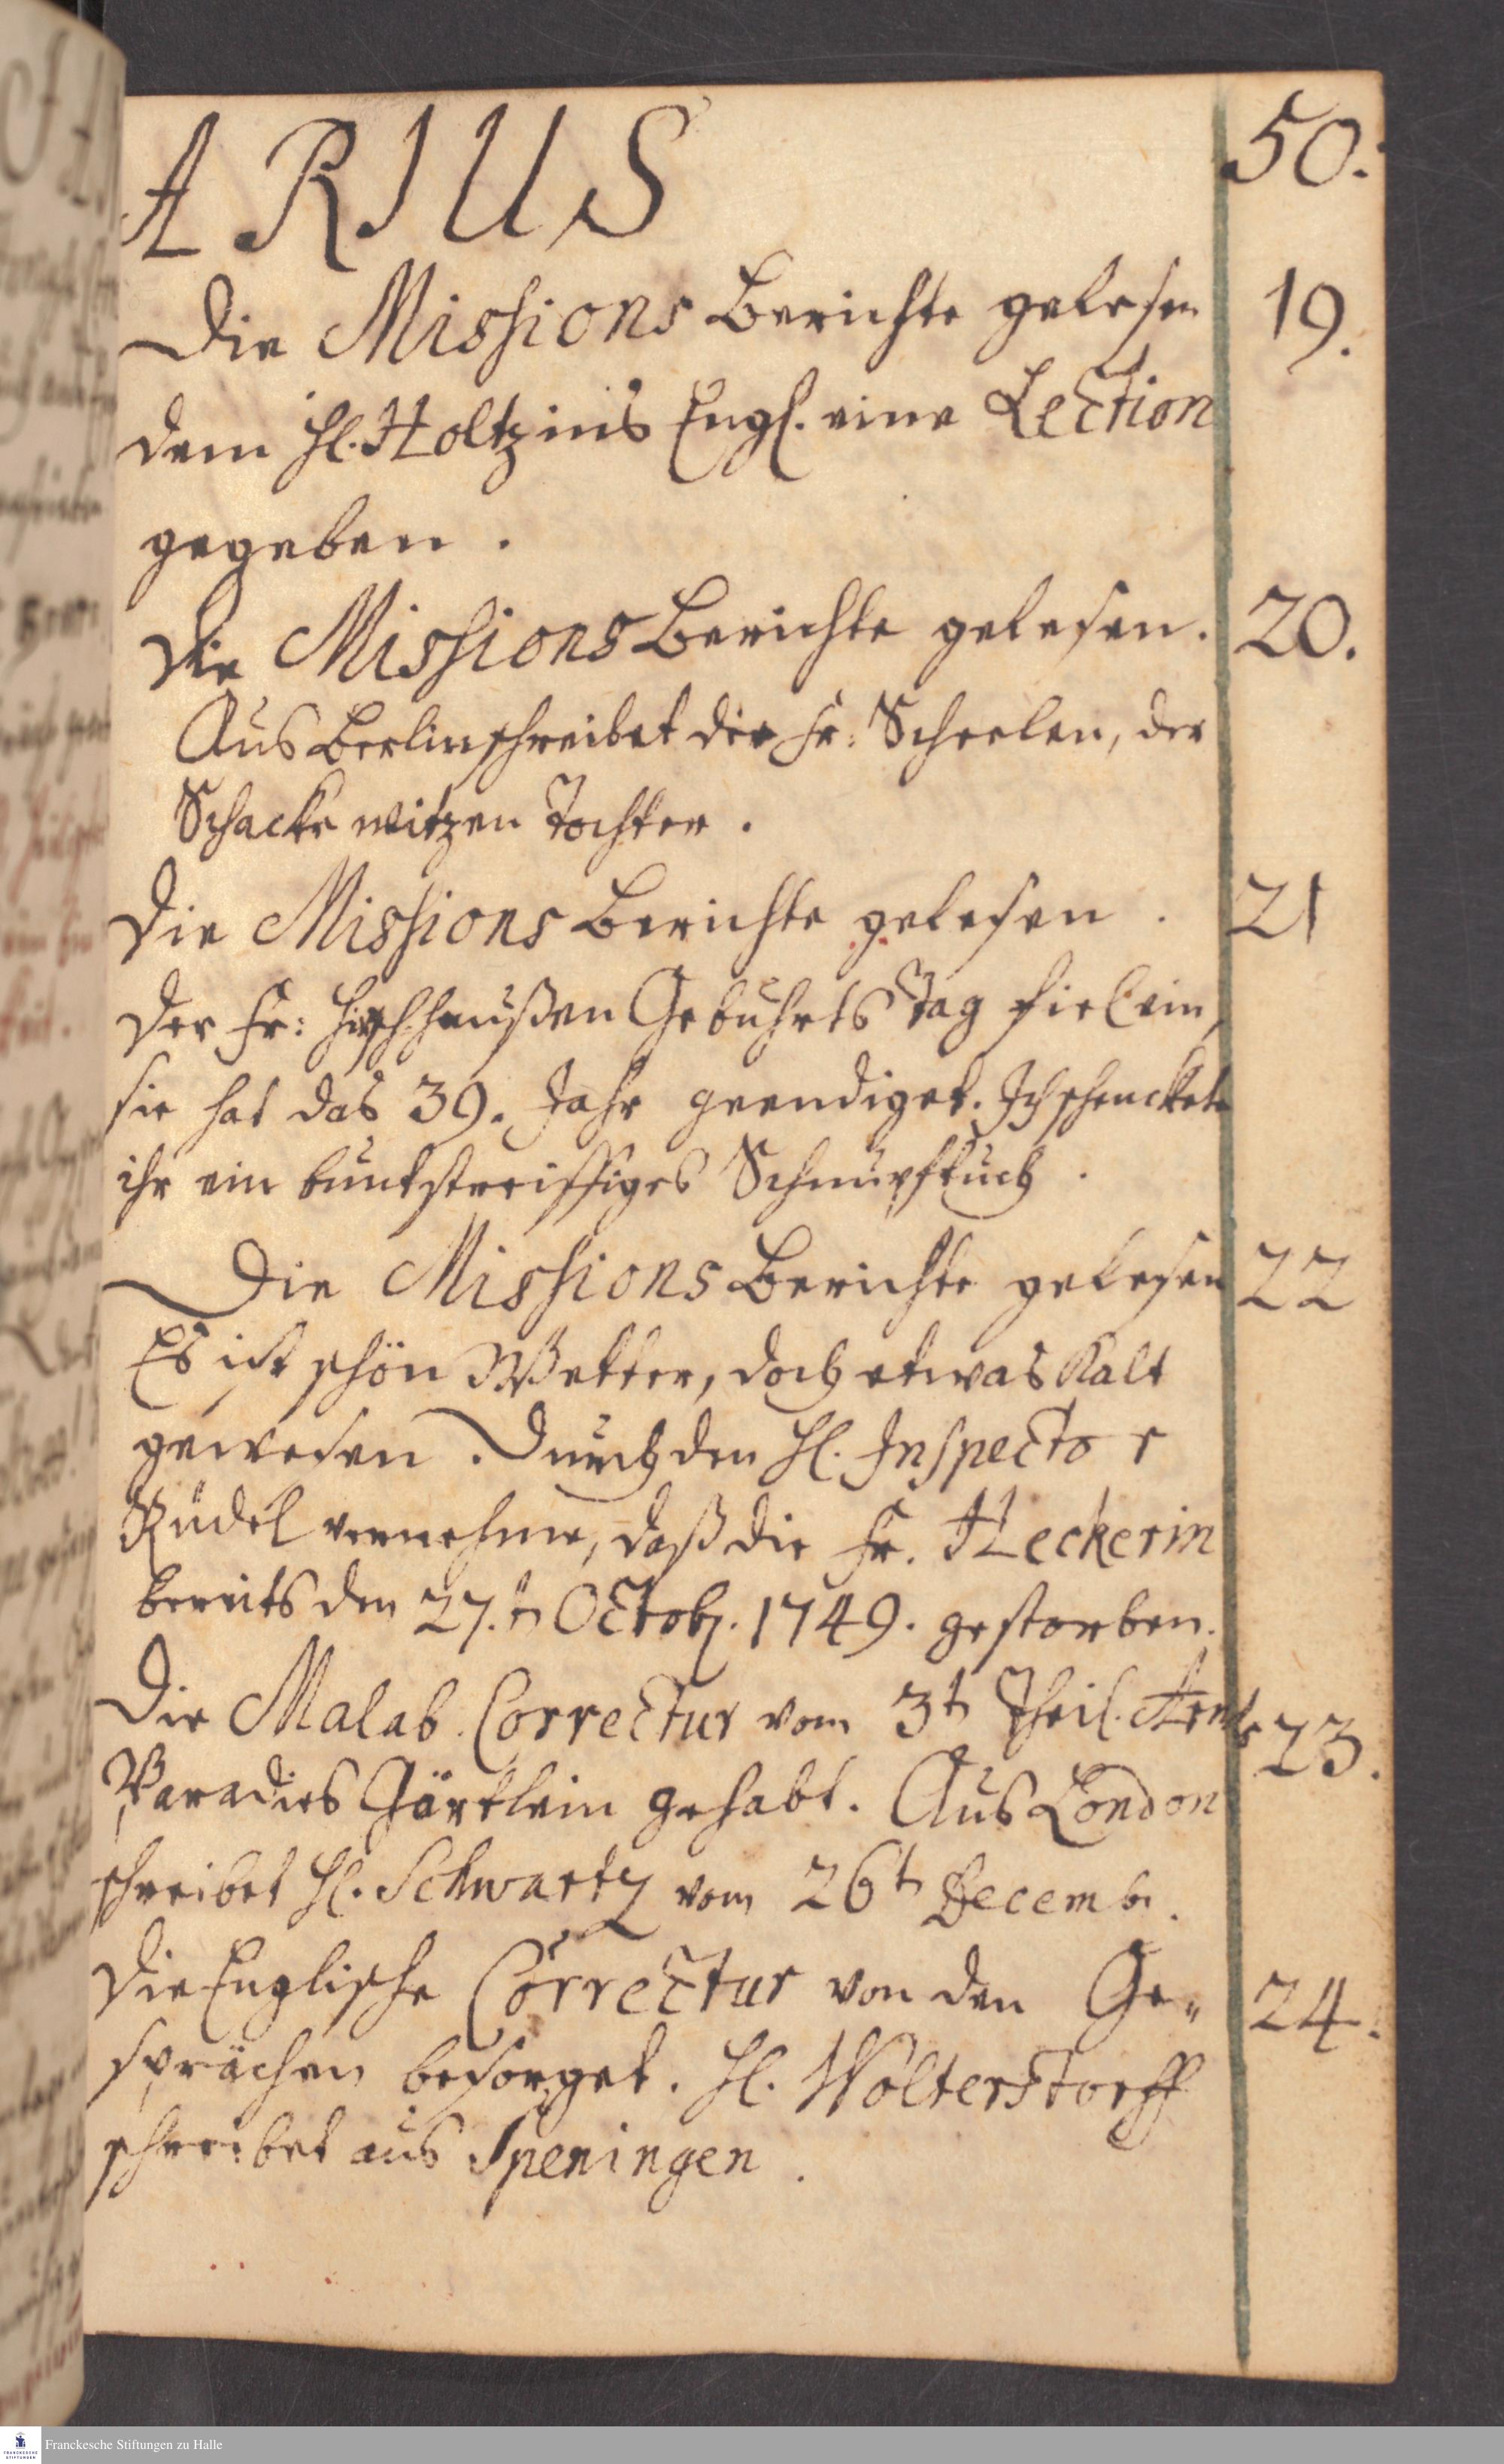 ARIUS 50.
Die Missions Berichte gelesen 19.
dem H. Holtz ins Engl. eine Lection
gegeben.
Die Missions Berichte gelesen. 20.
Aus Berlin schreibet die Fr: Scheelen, der
Schackewitzen Tochter.
Die Missions Berichte gelesen. 21
Der Fr: Gebuhrts Tag fiel ein,
sie hat das 39. Jahr geendiget. Ich schenckete
ihr ein buntstreiffiges Schnupftuch.
Die Missions Berichte gelesen 22
Es ist schön Wetter, doch etwas Kalt
gewesen. Durch den H. Inspector
Rüdel vernehme, daß die Fr. Heckerin
bereits den 27.t Octobr. 1749. gestorben.
Die Malab. Correctur vom 3t Theil. Arnds 23.
Paradies Gärtlein gehabt. Aus London
schreibet H. Schwartz vom 26t Decembr.
Die Englische Correctur von den Ge- 24.
sprächen besorget. H. Wolterstorff
schreibet aus Speningen.
Franckesche Stiftungen zu Halle